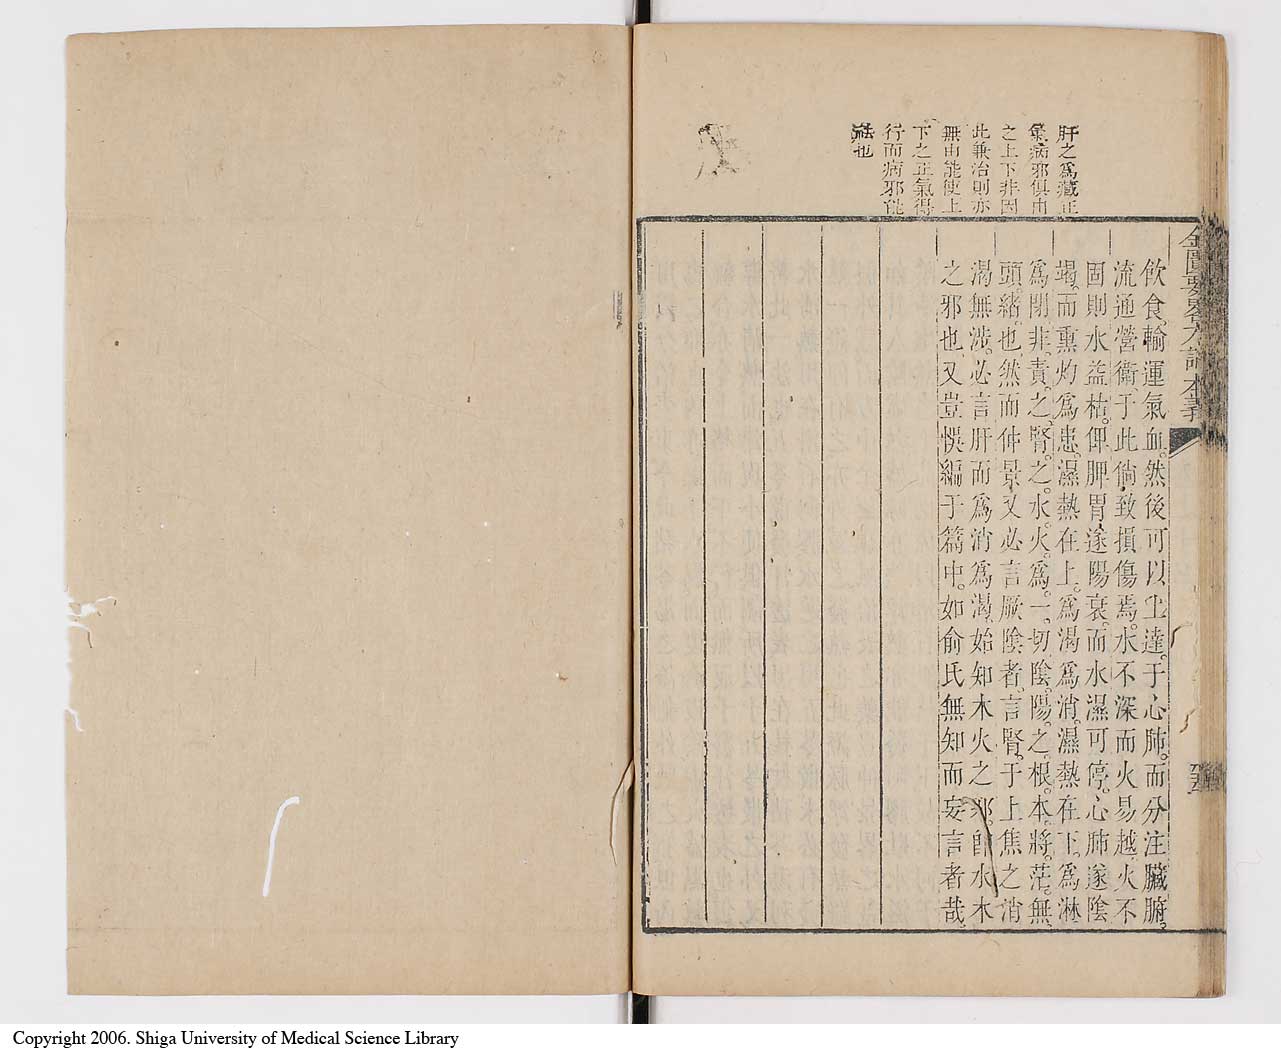 肝之爲藏正
氣病邪俱由
之上下非因
此兼治則亦
無由能使上
下之正氣得
行而病邪能
祛也
金匱要畧方論本義
飲食輸運氣血。然後可以上達。于心肺。而分注臟腑。
流通營衛、于此倘致損傷焉。水不深而火易越、火不
固則水益枯。俾脾胃遂陽衰。而水濕可停。心肺遂陰
竭。而熏灼爲患、濕熱在上。爲渴爲消。濕熱在下。爲淋
爲閉、非。責。之。腎。之。水。火。爲。一。切。陰。陽。之。根。本。將。茫。無。
頭。緒。也、然而仲景又必言厥陰者。言腎。于上焦之消
渴無涉。必言肝而爲消爲渴、始知木火之邪。卽水木
之邪也、又豈悞編于篇中。如俞氏無知而妄言者哉。
Copyright 2006. Shiga University of Medical Science Library